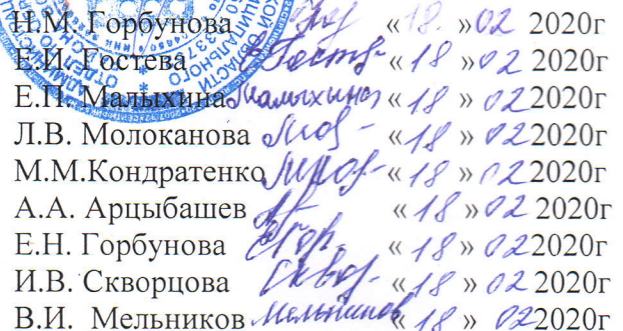 Н.М. Горбунова «18.» 02 2020г
Е.И. Гостева ЕГостев- «18» 02 2020г
Е.П. Малыхина Малыхина «18» 02 2020г
Л.В. Молоканова «18» 02 2020г
М.М.Кондратенко «18» 02 2020г
А.А. Арцыбашев «18» 02 2020г
Е.Н. Горбунова ЕГор. «18» 02 2020г
И.В. Скворцова Сквор- «18» 02 2020г
В.И. Мельников Мельников «18» 02 2020г